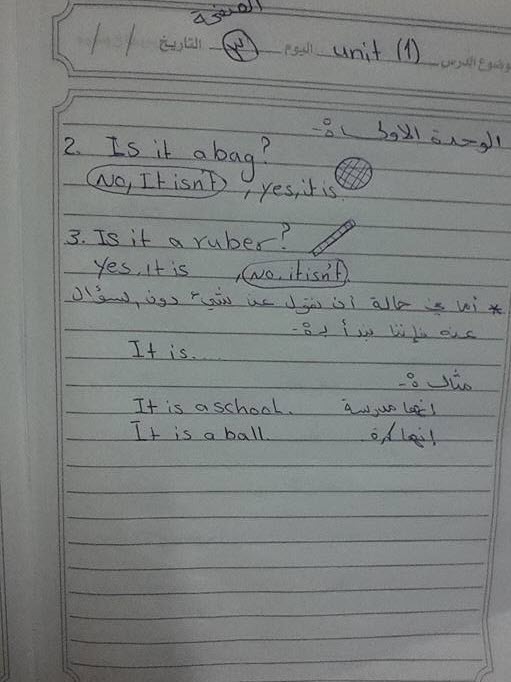 الصفحة
موضوع الدرس unit (1) اليوم (٣) التاريخ / /
الوحدة الاولى :-
2. Is it a bag?
No, It isn't , yes, it is
3. Is it a ruber?
Yes. it is , No. it isn't.
* أما في حالة أن نقول عن شيء دون لسؤال
عنه فإننا نبدأ بـ :-
It is....
مثال :-
It is a school. انها مدرسة
It is a ball. إنها كرة